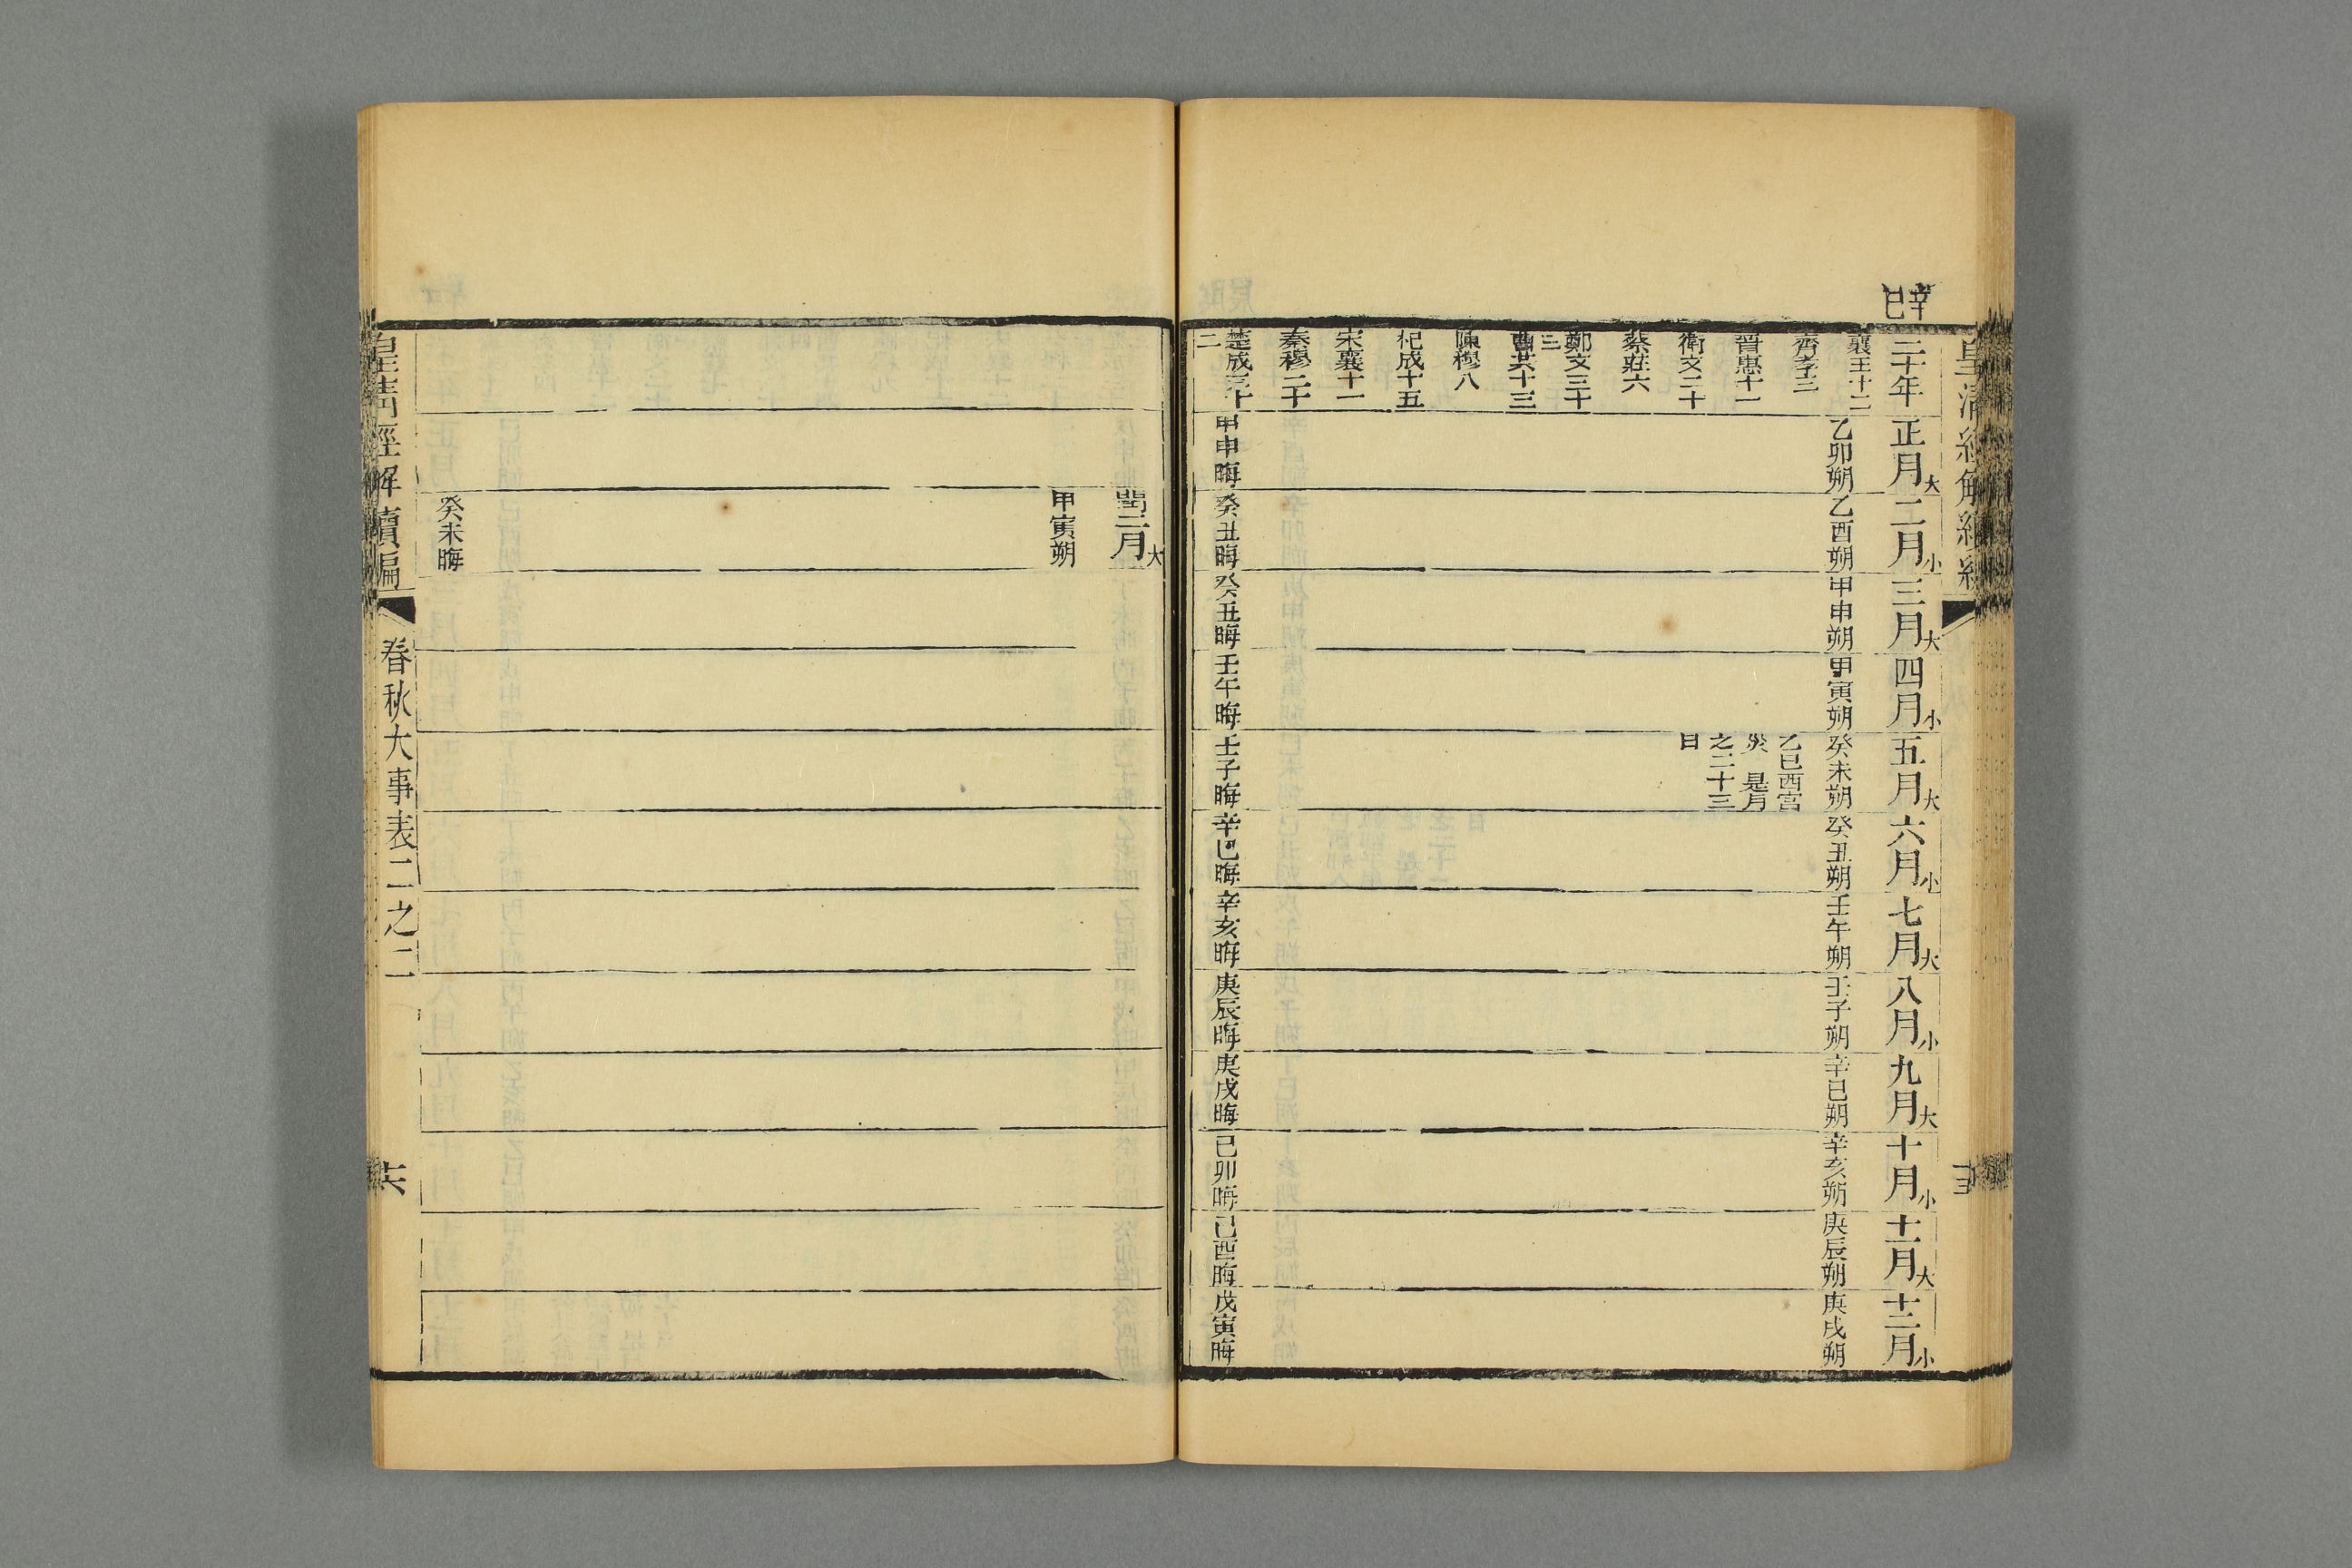 皇清經解續編
辛巳
二十年 正月大 二月小 三月大 四月小 五月大 六月小 七月大 八月小 九月大 十月小 十一月大 十二月小
襄王十二
乙卯朔 乙酉朔 甲申朔 甲寅朔 癸未朔 癸丑朔 壬午朔 壬子朔 辛巳朔 辛亥朔 庚辰朔 庚戌朔
齊孝三
乙巳西宮
晉惠十一
災 是月
衛文二十
之二十三
日
蔡莊六
鄭文三十
三
曹共十三
陳穆八
杞成十五
宋襄十一
秦穆二十
楚成三十
二
甲申晦 癸丑晦 癸丑晦 壬午晦 壬子晦 辛巳晦 辛亥晦 庚辰晦 庚戌晦 己卯晦 己酉晦 戊寅晦
閏二月大
甲寅朔
癸未晦
皇清經解續編
春秋大事表二之二
十六